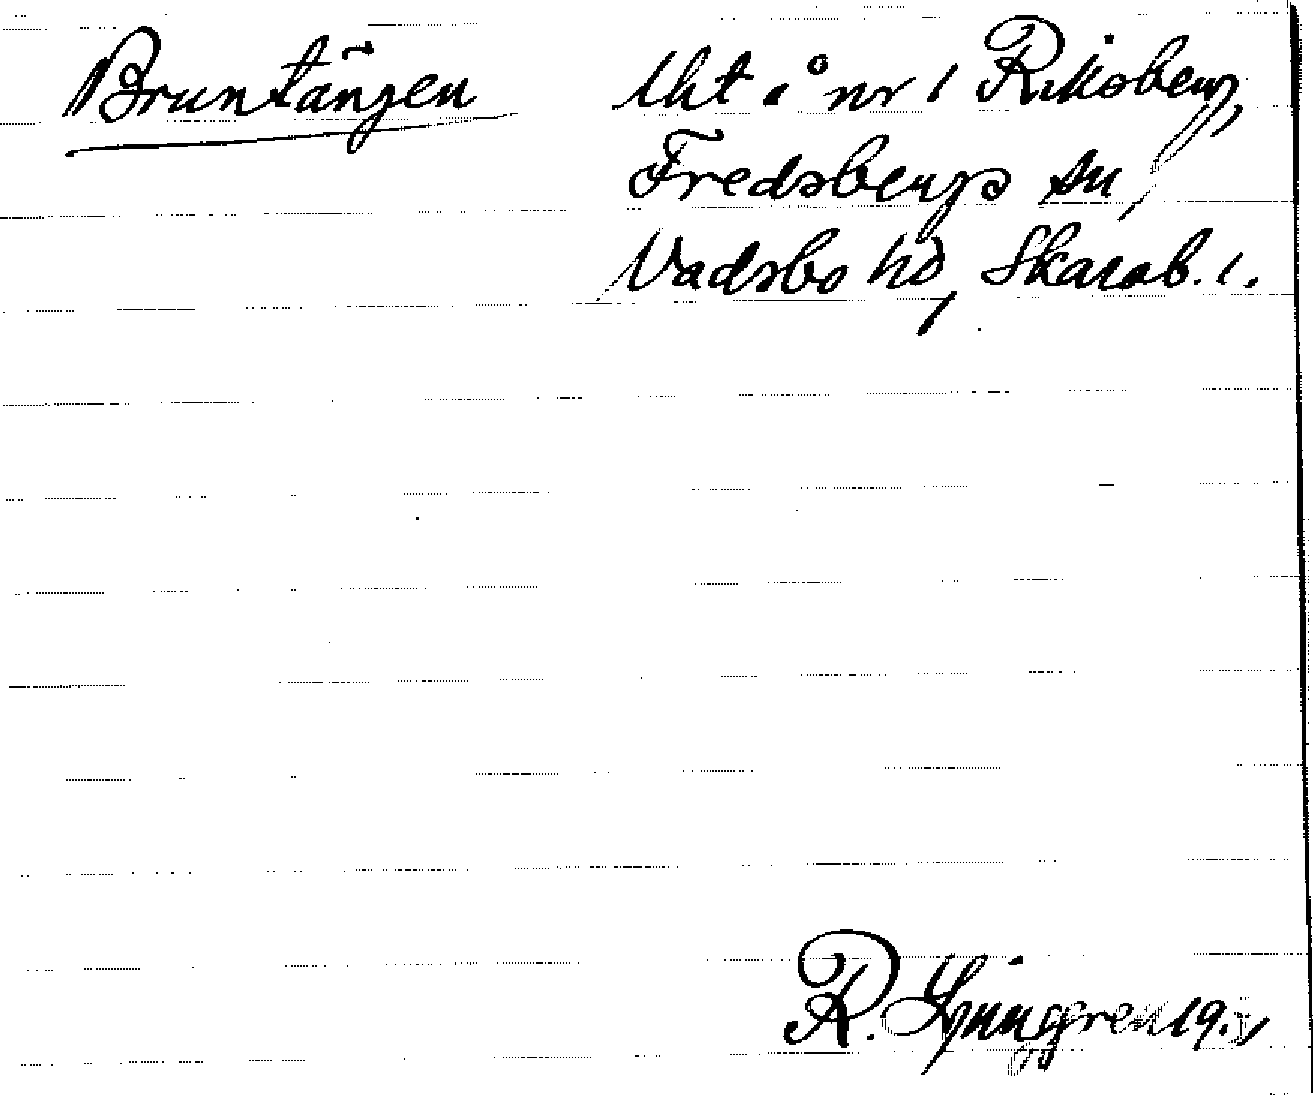 Bruntängen
lht å nr 1 Riksberg,
Fredsbergs sn,
Vadsbo hd, Skarab. l.
R. Ljunggren